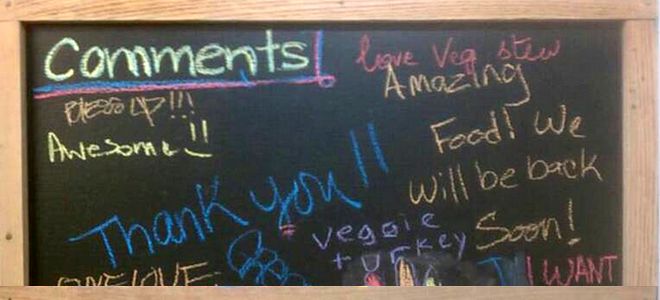 Comments!
love Veg stew
BLESS UP!!!
Awesome!!
Amazing
Food! We
will be back
Soon!
Thank you!!
veggie
turkey
ONE LOVE
I WANT